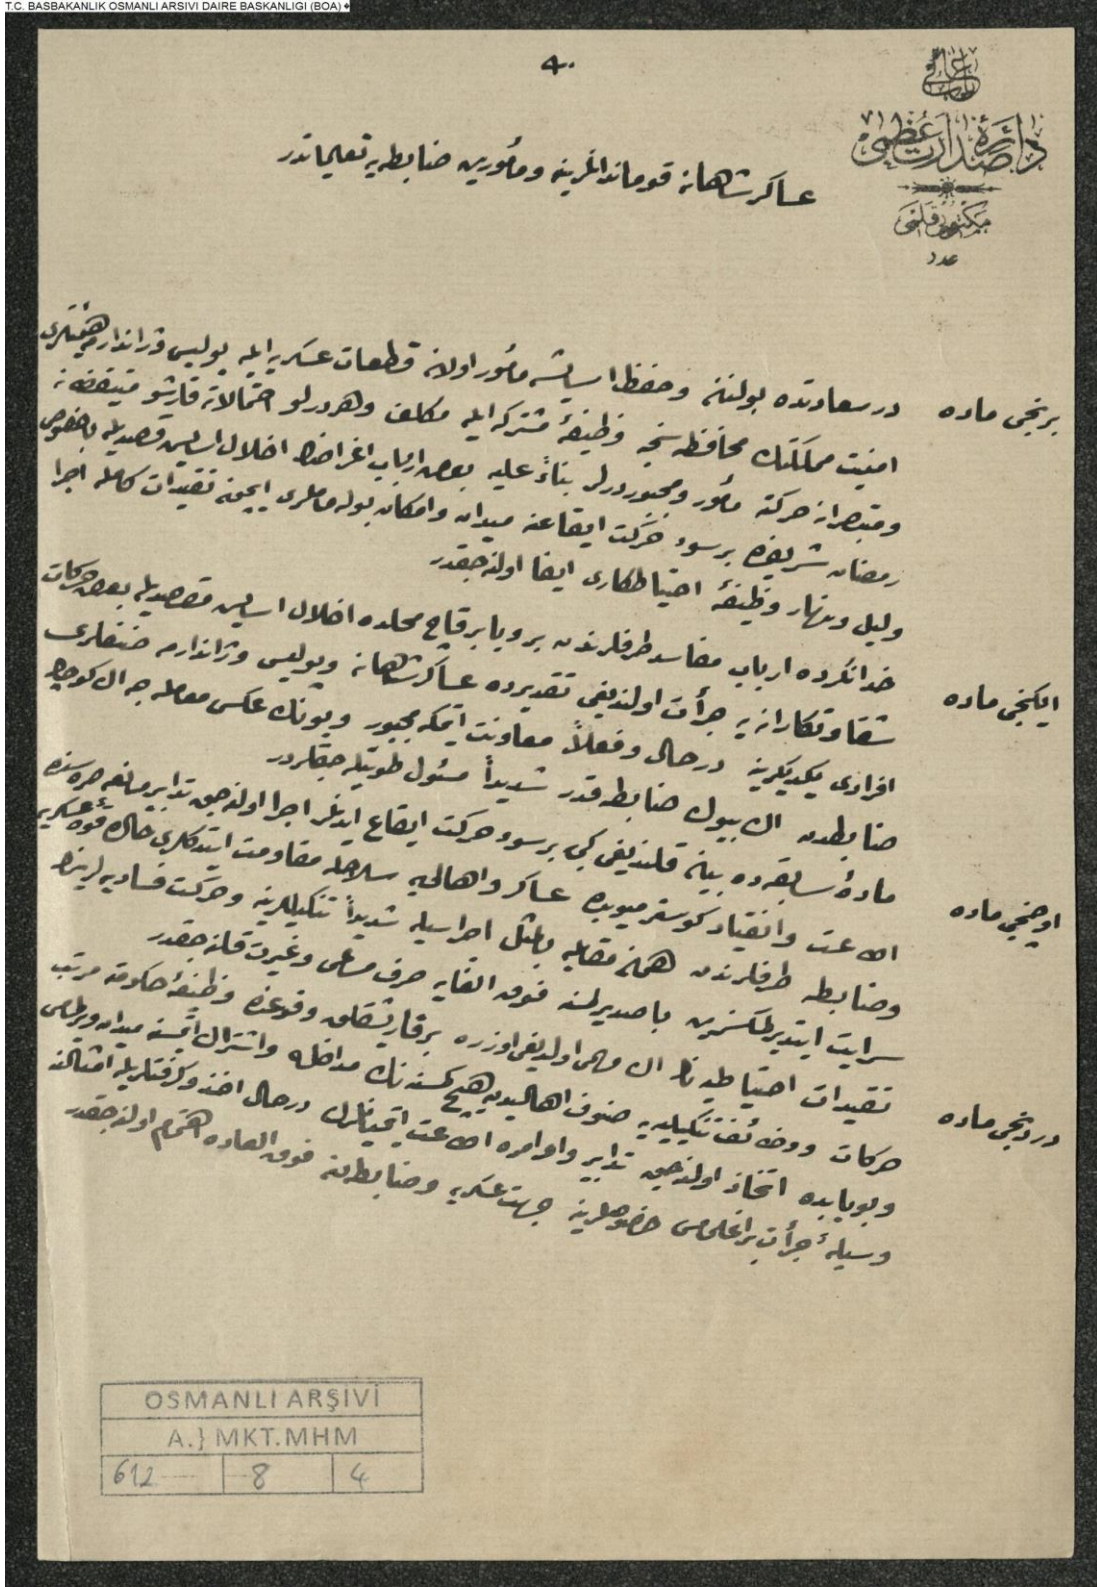 T.C. BASBAKANLIK OSMANLI ARSIVI DAIRE BASKANLIGI (BOA) �
٤٠
باب عالی
دائرۀ صدارت عظمی
مكتوبی قلمی
عدد
عساكر شاهانه قومانداﻧلرینه و مأمورین ضابطه‌یه تعلیماتدر
برنجی ماده
در سعادتده بولنان و حفظ اسایشه مأمور اولان قطعات عسكریه ایله پولیس و ژاندارمه هیئتلری
امنیت مملكتك محافظه‌سنجه وظیفۀ مشتركه ایله مكلف و هر درلو احتمالاته قارشو متیقظانه
و متبصرانه حركته مأمور و مجبوردرلر بناءً علیه بعض ارباب اغراضك اخلال اسایش قصدیله باخصوص
رمضان شریفده بر سوء حركت ایقاعنه میدان و امكان بوله‌ماملری ایچون تقیدات كامله اجرا
و لیل و نهار وظیفۀ احتیاطكاری ایفا اولنه‌جقدر
ایكنجی ماده
خدانكرده ارباب مفاسد طرفلرندن بر ویا بر قاچ محلده اخلال اسایش مقصدیله بعض حركات
شقاوتكارانه‌یه جرأت اولندیغی تقدیرده عساكر شاهانه و پولیس و ژاندارمه صنفلری
افرادی یكدیگرینه درحال و فعلاً معاونت ایتمكه مجبور و بونك عكسی معامله‌جه ال كوچك
ضابطدن ال بیوك ضابطه قدر شدیداً مسئول طوتیله‌جقلردر
اوچنجی ماده
مادۀ سابقه‌ده بیان قلندیغی كبی بر سوء حركت ایقاع ایدنلر اجرا اولنه‌جق تدابیر مانعه صره‌سنده
اطاعت و انقیاد كوسترمیوبده عساكر و اهالی‌یه سلاحله مقاومت ایتدكلری حالده قوۀ عسكریه
و ضابطه طرفلرندن همان مقابله بالمثل اجراسیله شدیداً تنكیللرینه و حركت فسادیه‌لرینك
سرایت ایتدیرلمكسزین باصدیرلمسنه فوق الغایه صرف مساعی و غیرت قلنه‌جقدر
دردنجی ماده
تقیدات احتیاطیه‌نك ال مهمی اولدیغی اوزره بر قاریشقلق وقوعنده وظیفۀ حكومته مرتب
حركات و وظائف تنكیلیه‌یه صنوف اهالیدن هیچ كسه‌نك مداخله و اشتراك ایتمسنه میدان ویرلمامسی
و بوبابده اتخاذ اولنه‌جق تدابیر و اوامره اطاعت ایتمیانلرك درحال اخذ و كرفتاریله امثالنه
وسیلۀ جرأت براقلمامسی خصوصلرینه جهت عسكریه و ضابطه‌دن فوق العاده اهتمام اولنه‌جقدر
OSMANLI ARŞİVİ
A.} MKT.MHM
612 8 4